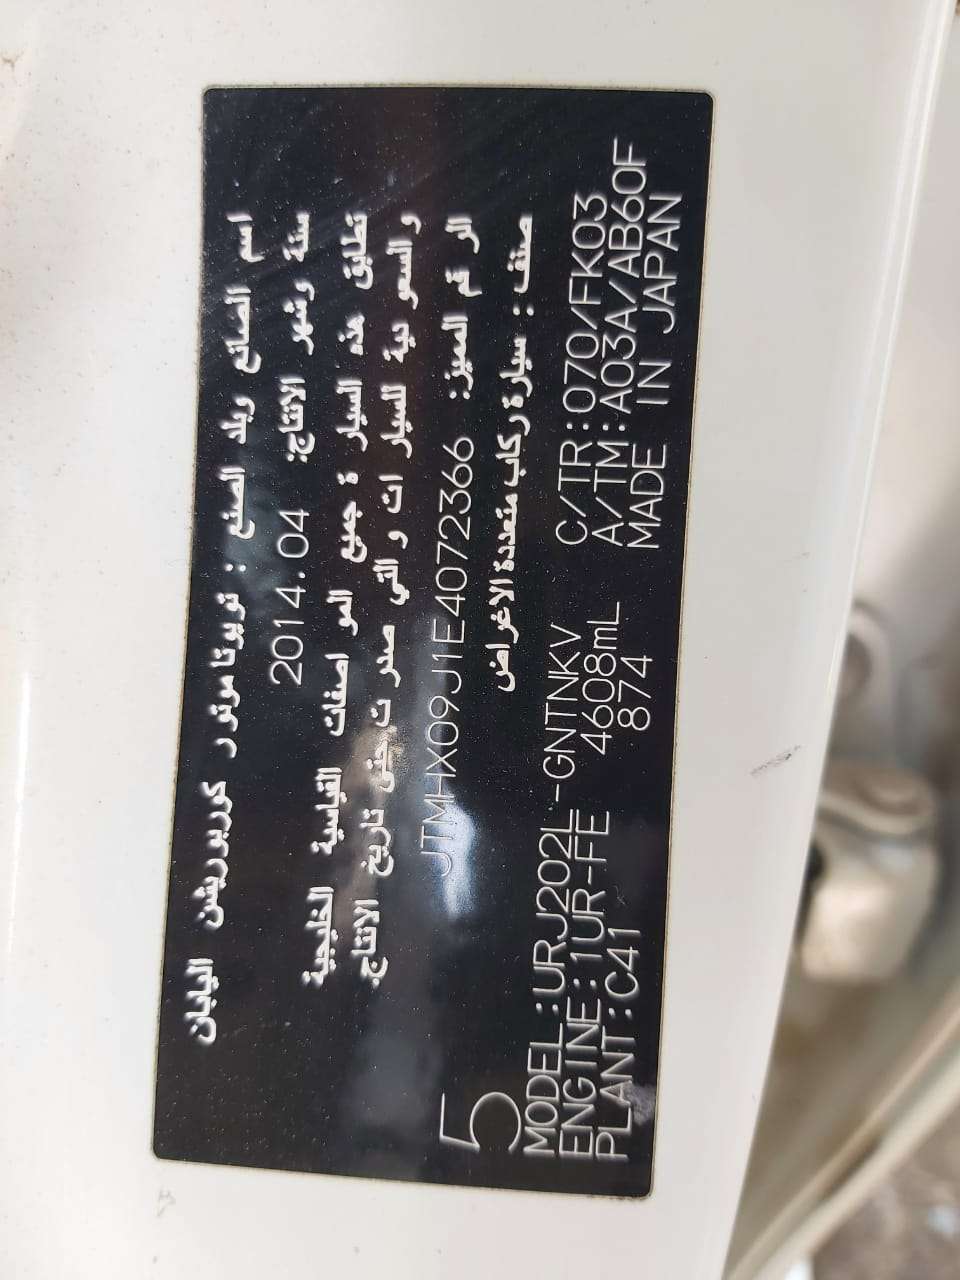 اسم الصانع وبلد الصنع : تويوتا موتور كوربوريشن اليابان
سنة وشهر الانتاج: 2014.04
تطابق هذه السيارة جميع المواصفات القياسية الخليجية
والسعودية للسيارات والتي صدرت حتى تاريخ الانتاج.
الرقم المميز: JTMHX09J1E4072366
صنف : سيارة ركاب متعددة الاغراض
5
MODEL:URJ202L-GNTNKV C/TR:070/FK03
ENGINE:1UR-FE 4608mL A/TM:A03A/AB60F
PLANT:C41 874 MADE IN JAPAN